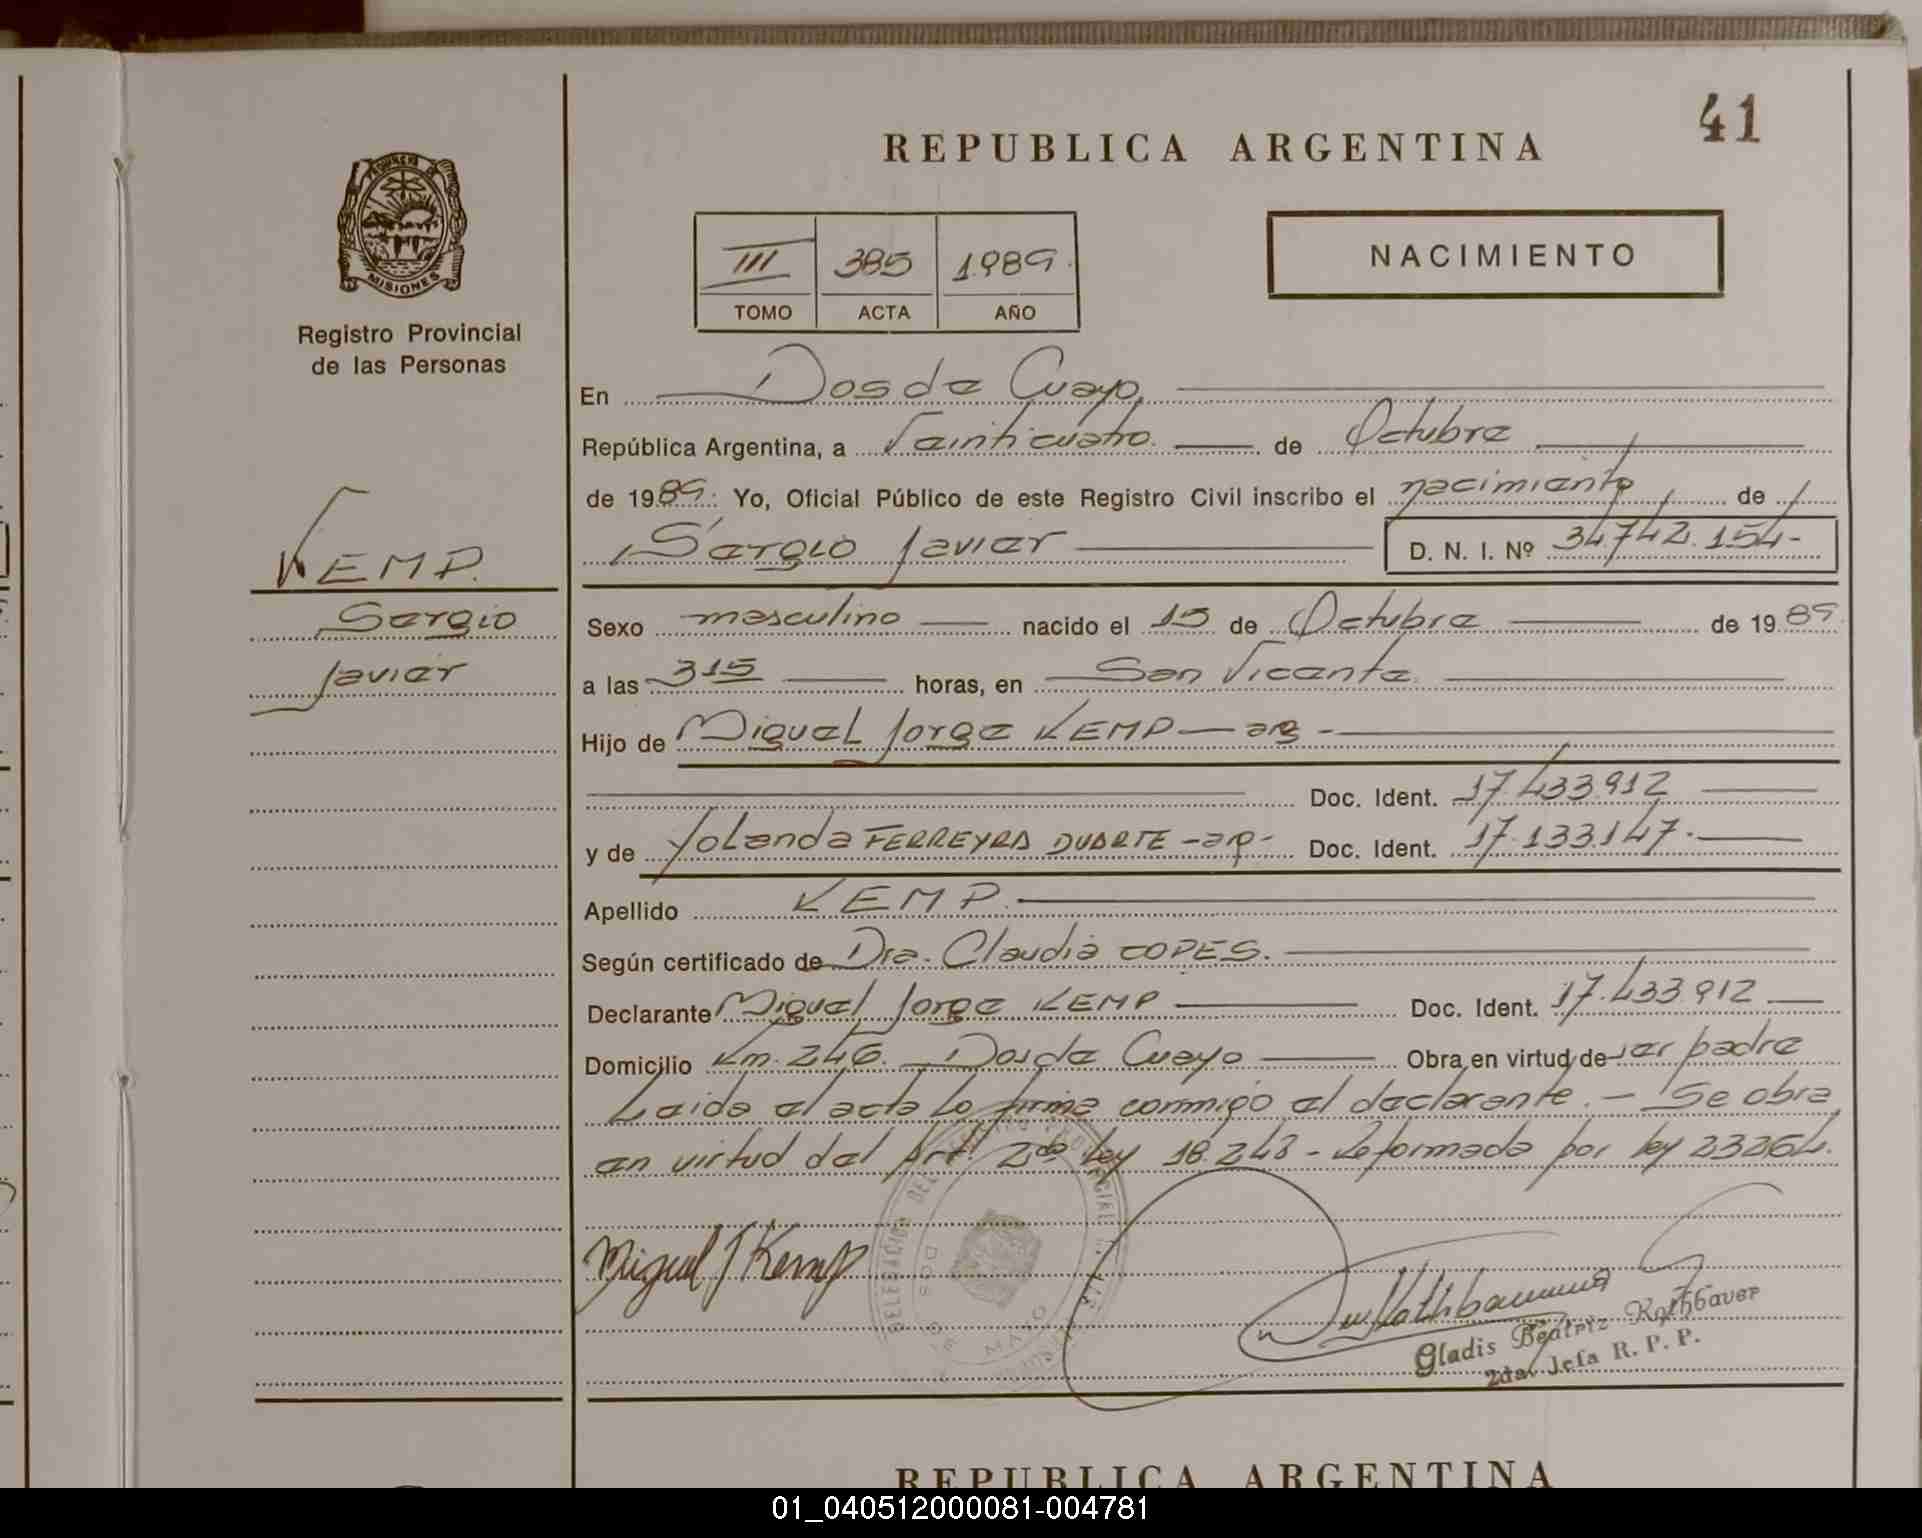 41
REPUBLICA ARGENTINA
MISIONES
Registro Provincial
de las Personas
III 385 1989
TOMO ACTA AÑO
NACIMIENTO
KEMP.
Sergio
Javier
En Dos de Mayo,
República Argentina, a Veinticuatro. de Octubre
de 1989: Yo, Oficial Público de este Registro Civil inscribo el nacimiento de
Sergio Javier D. N. I. Nº 34.742.154-
Sexo masculino nacido el 15 de Octubre de 1989.
a las 315 horas, en San Vicente.
Hijo de Miguel Jorge KEMP — arg -
Doc. Ident. 17.433.912
y de Yolanda FERREYRA DUARTE - arg - Doc. Ident. 17.133.147.-
Apellido KEMP.
Según certificado de Dra. Claudia COPES.
Declarante Miguel Jorge KEMP Doc. Ident. 17.433.912
Domicilio Km. 246. Dos de Mayo Obra en virtud de ser padre
Leida el acta lo firma conmigo el declarante. — Se obra
en virtud del Art. 2do ley 18.248 - Reformada por ley 23264.
Miguel J Kemp
DELEGACION DEL REGISTRO PROVINCIAL
DOS DE MAYO
Gladis Beatriz Rothbauer
2da. Jefa R. P. P.
REPUBLICA ARGENTINA
01_040512000081-004781